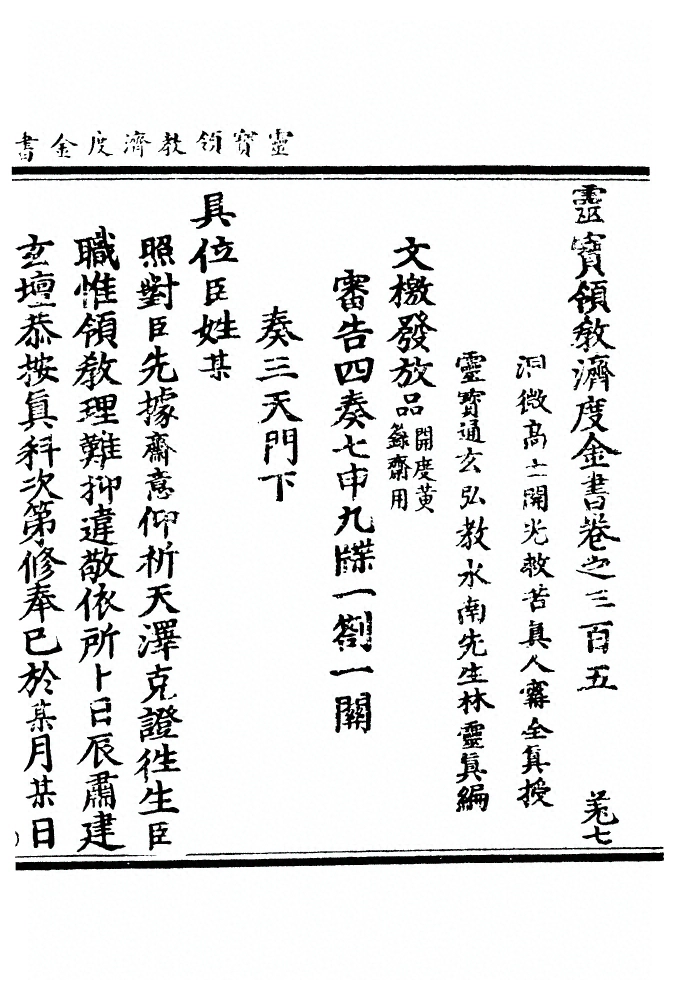 靈寶領教濟度金書
靈寶領教濟度金書卷之三百五 羌七
洞微高士開光救苦真人寗全真授
靈寶通玄弘教水南先生林靈真編
文檄發放品開度黃籙齋用
審告四奏七申九牒一劄一關
奏三天門下
具位臣姓某
照對臣先據齋意仰祈天澤克證徃生臣
職惟領教理難抑違敬依所卜日辰肅建
玄壇恭按真科次第修奉已於某月某日